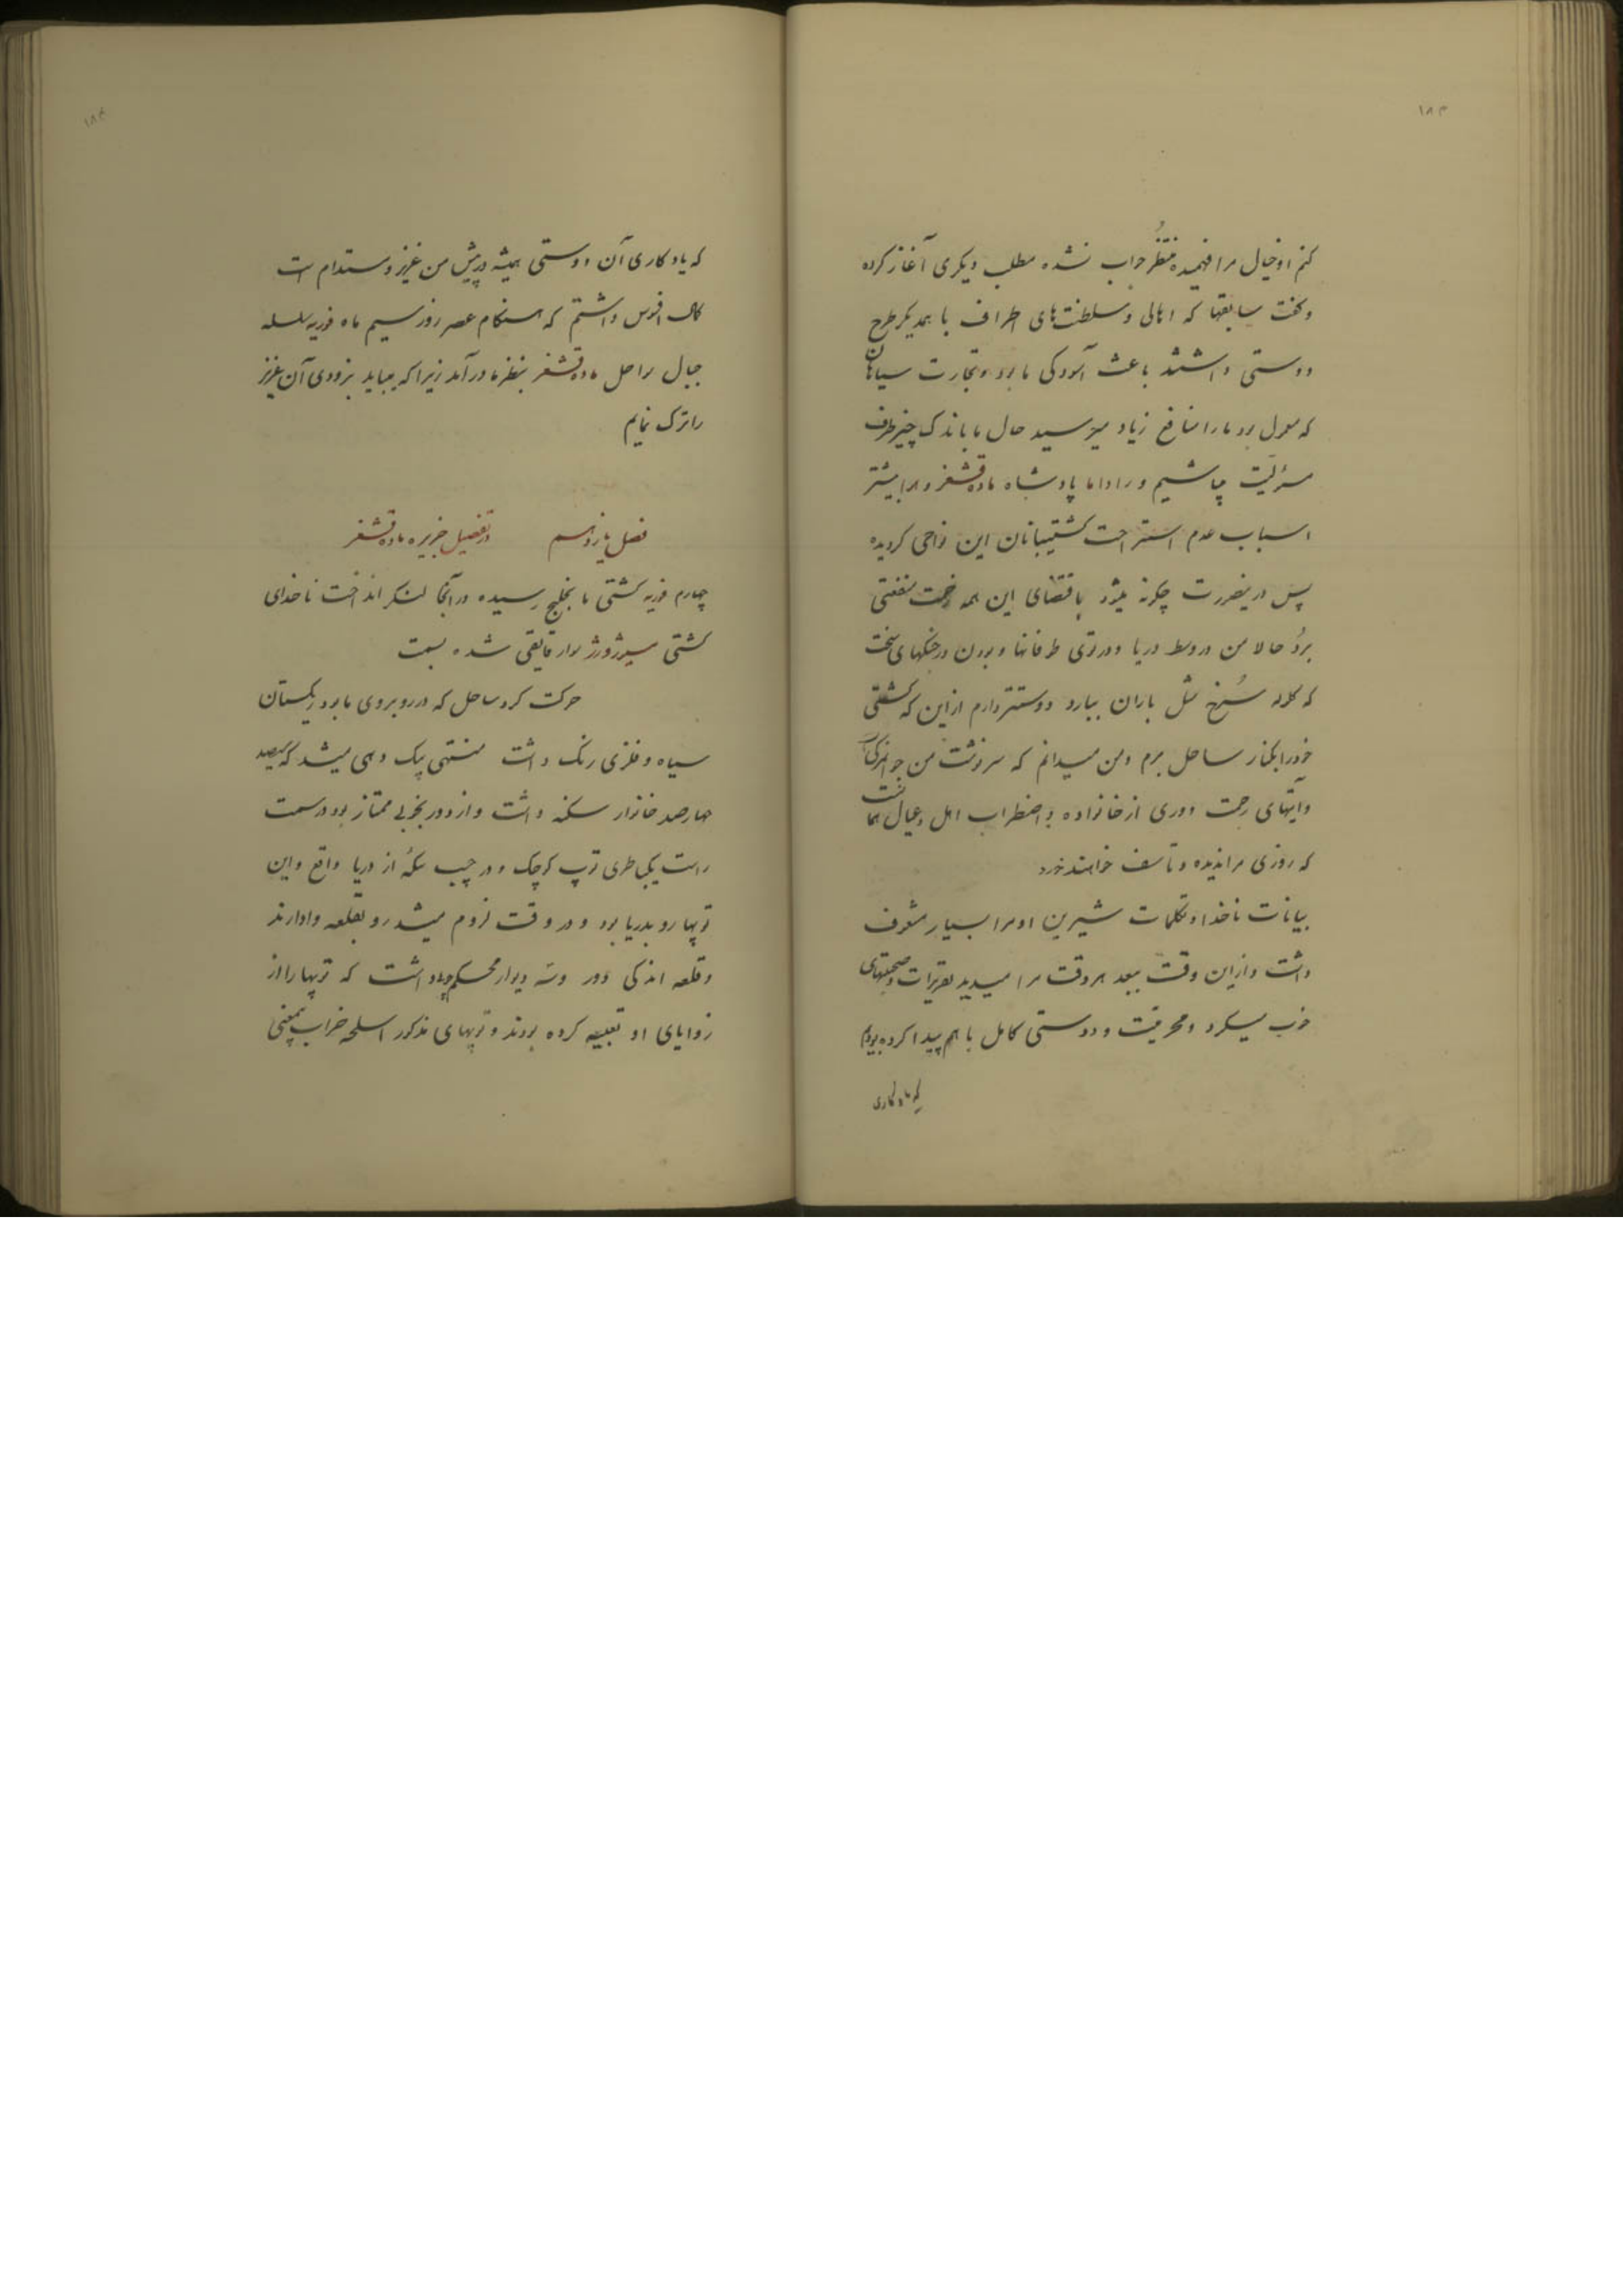 ۱۸۳
کنم او خیال مرا فهمیده منتظر جواب نشده مطلب دیکری آغاز کرده
و کفت سابقها که اهالی و سلطنت‌های اطراف با همدیکر طرح
دوستی داشتند باعث آسودکی ما بود و تجارت سیاهان
که معمول بود ما را منافع زیاد میرسید حال ما باندک چیز طرف
مسؤلیت میباشیم و راداما پادشاه ماده‌قشغر و هرا بیشتر
اسباب عدم استراحت کشتیبانان این نواحی کردیده
پس در ینصورت چکونه میشود باقتضای این همه زحمت منفعتی
برد حالا من در وسط دریا و در توی طوفانها و بودن در جنکهای سخت
که کلوله سرخ مثل باران ببارد دوستتر دارم از این که کشتی
خود را بکنار ساحل برم و من میدانم که سرنوشت من جوانمرکی
وانتهای زحمت دوری از خانواده و اضطراب اهل و عیال ماست
که روزی مرا ندیده و تأسف خواهند خورد
بیانات ناخدا و تکلمات شیرین او مرا بسیار مشعوف
داشت و از این وقت ببعد هر وقت مرا میدید تقریرات و صحبتهای
خوب میکرد و محرمیت و دوستی کامل با هم پیدا کرده بودیم
که یادکاری
۱۸۴
که یادکاری آن دوستی همیشه در پیش من عزیز و مستدام است
کمال افسوس داشتم که هنکام عصر روز سیم ماه فوریه سلسله
جبال سواحل ماده‌قشغر بنظر ما در آمد زیرا که میباید بزودی آن عزیز
را ترک نمایم
فصل یازدهم در تفصیل جزیره ماده‌قشغر
چهارم فوریه کشتی ما بخلیج رسیده در آنجا لنکر انداخت ناخدای
کشتی مسیو ژورژ سوار قایقی شده بسمت
حرکت کرد ساحل که در روبروی ما بود ریکستان
سیاه و فلزی رنک داشت منتهی بیک دهی میشد که سیصد
چهارصد خانوار سکنه داشت و از دور بخوبی ممتاز بود در سمت
راست یک باطری توپ کوچک و در چپ تکهٔ از دریا واقع و این
توپها رو بدریا بود و در وقت لزوم میشد رو بقلعه وادارند
و قلعه اندکی دور و سه دیوار محکم داشت که توپها را از
زوایای او تعبیه کرده بودند و توپهای مذکور اسلحه خراب بیمعنی